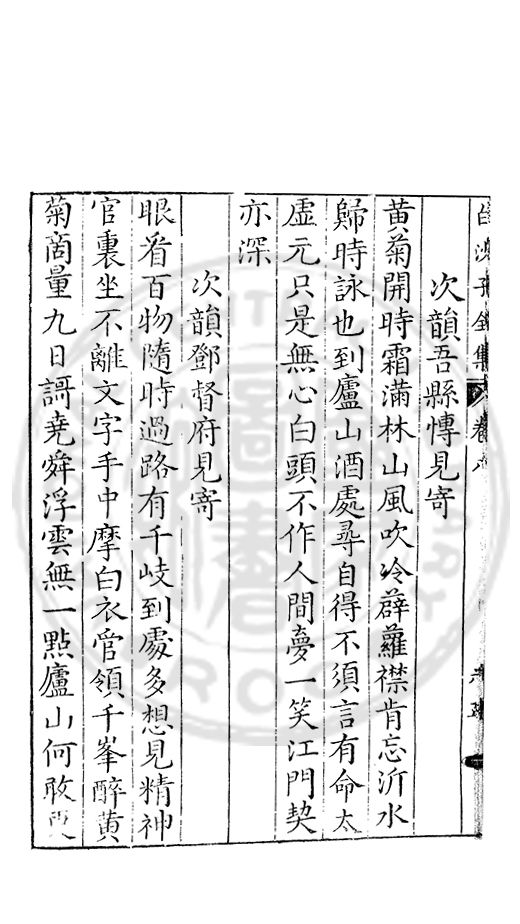 白沙子全集 卷六
次韻吾縣博見寄
黄菊開時霜滿林山風吹冷薜蘿襟肯忘沂水
歸時詠也到廬山酒處尋自得不須言有命太
虛元只是無心白頭不作人間夢一笑江門契
亦深
次韻鄧督府見寄
眼看百物隨時過路有千岐到處多想見精神
官裏坐不離文字手中摩白衣管領千峯醉黄
菊商量九日謌堯舜浮雲無一點廬山何敢更